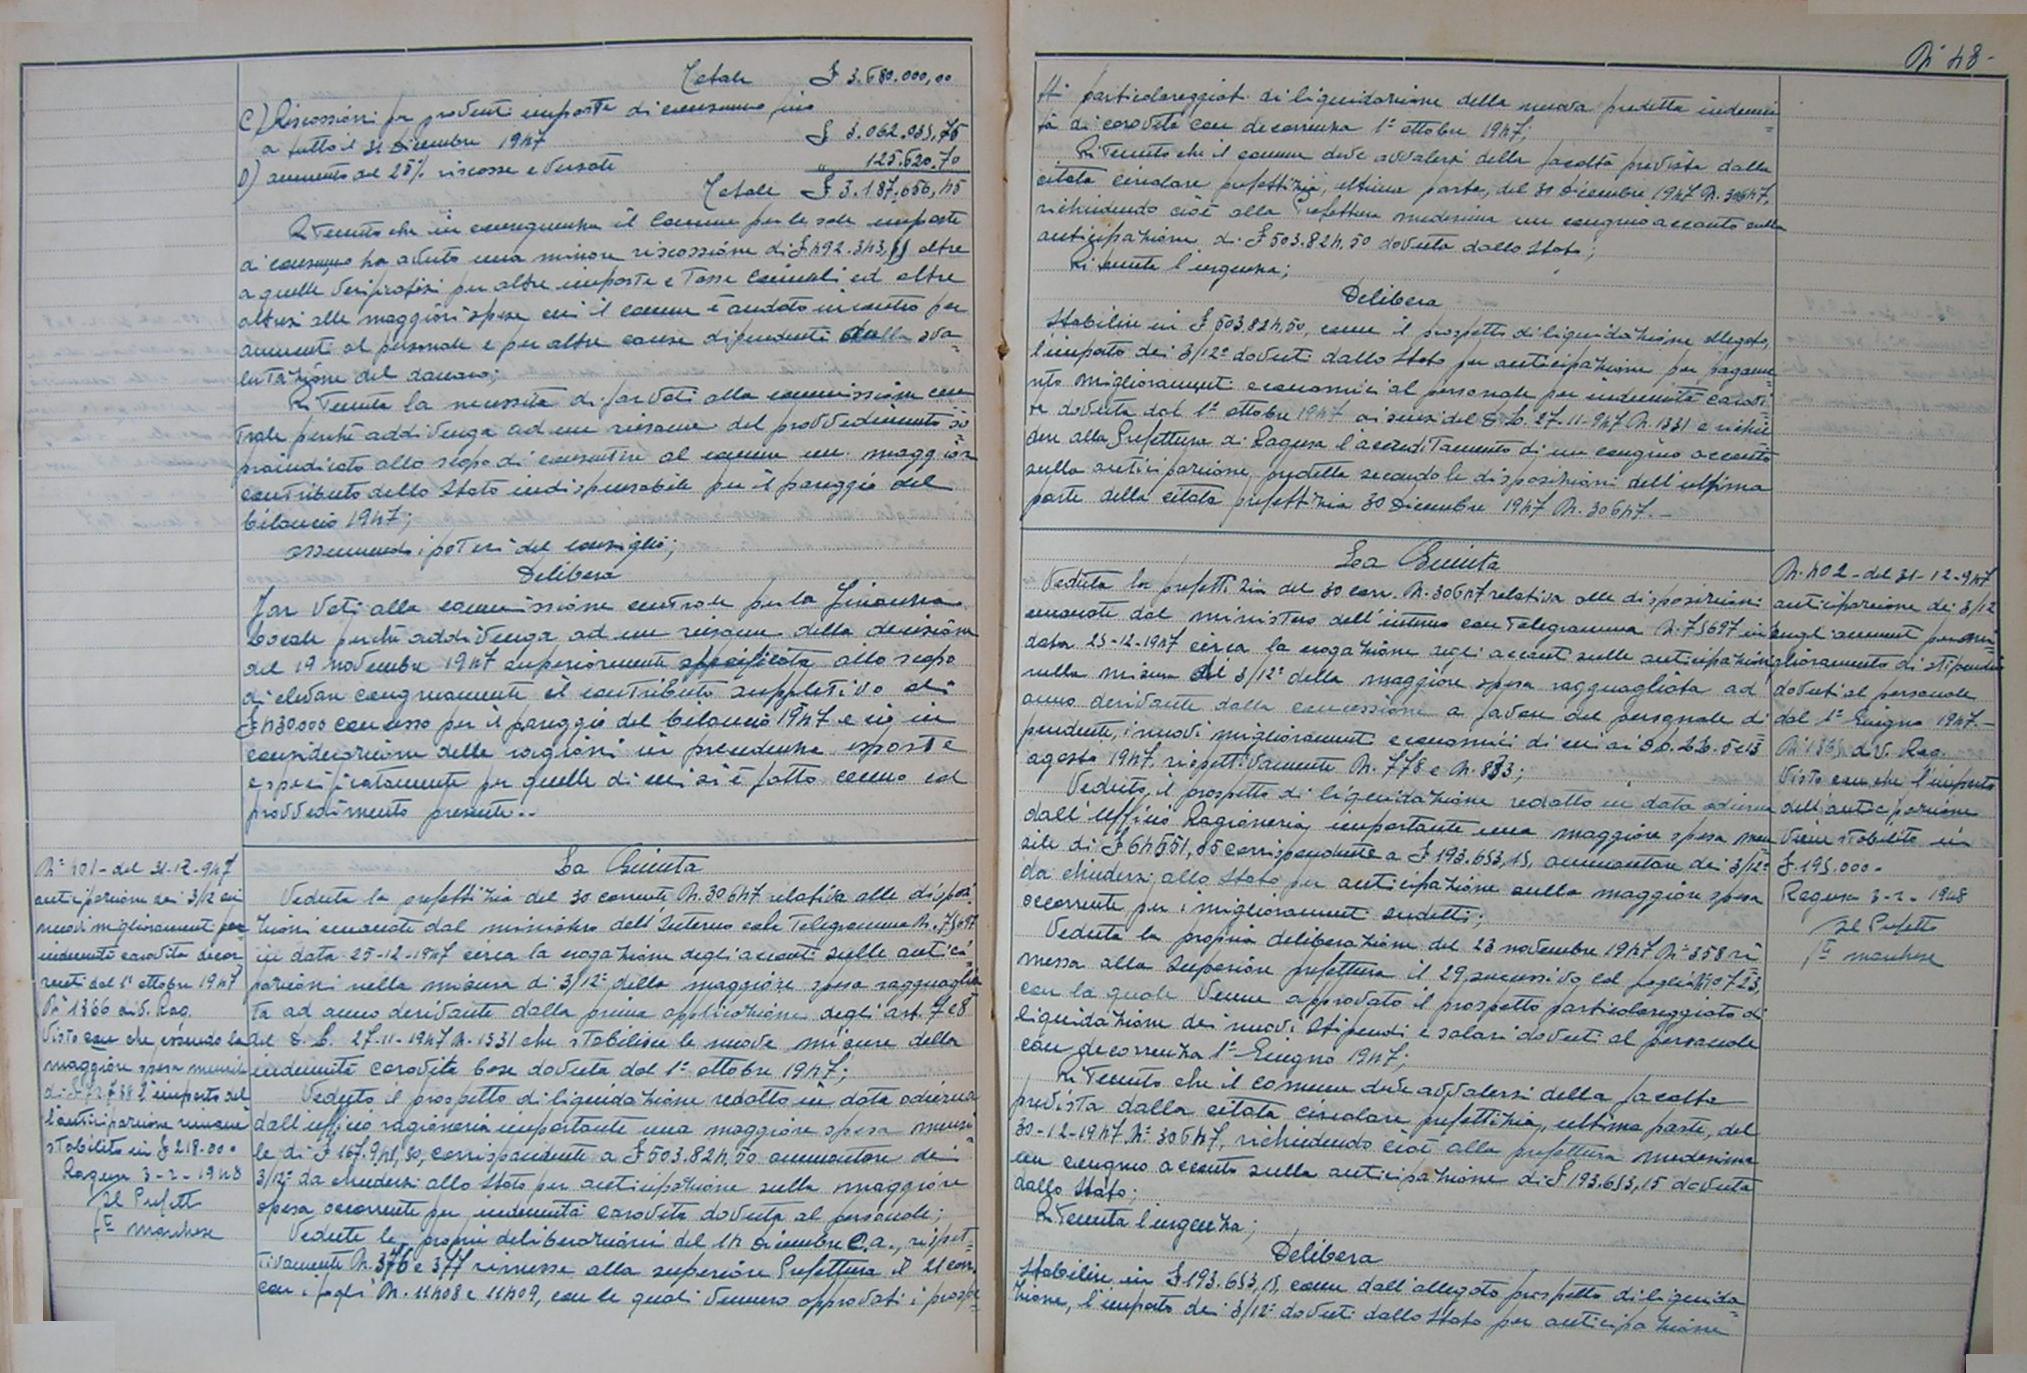 Totale £ 3.680.000,00
C) Riscossioni per proventi imposte di consumo fino
a tutto il 31 dicembre 1947 £ 3.062.035,75
D) aumento del 25% riscosse e versate " 125.620,70
Totale £ 3.187.656,45
Ritenuto che in conseguenza il Comune per le sole imposte
di consumo ha avuto una minore riscossione di £ 492.343,55 oltre
a quelle verificatesi per altre imposte e tasse comunali ed oltre
altresì alle maggiori spese cui il comune è andato incontro per
aumenti al personale e per altre cause dipendenti dalla sva=
lutazione del danaro;
Ritenuta la necessità di far voti alla commissione cen
trale perchè addivenga ad un riesame del provvedimento so
praindicato allo scopo di consentire al comune un maggior
contributo dello Stato indispensabile per il pareggio del
bilancio 1947;
assumendo i poteri del consiglio;
Delibera
Far voti alla commissione centrale per la finanza
locale perchè addivenga ad un riesame della decisione
del 19 novembre 1947 superiormente specificata allo scopo
di elevare congruamente il contributo suppletivo di
£ 430000 concesso per il pareggio del bilancio 1947 e ciò in
considerazione delle ragioni in precedenza esposte
e specificatamente per quelle di cui si è fatto cenno col
provvedimento presente..
N° 401 - del 31-12-947
anticipazione dei 3/12 sui
nuovi miglioramenti per
indennità carovita decor
renti dal 1° ottobre 1947
N° 1366 div. Rag.
Visto con che essendo la
maggiore spesa mensile
di £ 72.738 l'importo del
l'anticipazione rimane
stabilito in £ 218.000
Ragusa 3-2-1948
Il Prefetto
f° marchese
La Giunta
Veduta la prefettizia del 30 corrente N. 30647 relativa alle disposi
zioni emanate dal ministero dell'Interno col Telegramma N. 75697
in data 25-12-1947 circa la erogazione degli acconti sulle antici
pazioni nella misura di 3/12 della maggiore spesa ragguaglia
ta ad anno derivante dalla prima applicazione degli art. 7 e 8
del D. L. 27-11-1947 N. 1331 che stabilisce le nuove misure della
indennità carovita base dovuta dal 1° ottobre 1947;
Veduto il prospetto di liquidazione redatto in data odierna
dall'ufficio ragioneria importante una maggiore spesa mensi
le di £ 167.941,50, corrispondente a £ 503.824,50 ammontare dei
3/12 da chiedersi allo Stato per anticipazione sulla maggiore
spesa occorrente per indennità carovita dovuta al personale;
Vedute le proprie deliberazioni del 14 dicembre c.a., rispet=
tivamente N. 376 e 377 rimesse alla superiore Prefettura il 21 corr.
con i fogli N. 11408 e 11409, con le quali vennero approvati i prospe=
N° 48 -
tti particolareggiati di liquidazione della nuova predetta indenni
tà di carovita con decorrenza 1° ottobre 1947;
Ritenuto che il comune deve avvalersi della facoltà prevista dalla
citata circolare prefettizia, ultima parte, del 30 dicembre 1947 N. 30647,
richiedendo cioè alla Prefettura medesima un congruo acconto sulla
anticipazione di £ 503.824,50 dovuta dallo Stato;
Ritenuta l'urgenza;
Delibera
Stabilire in £ 503.824,50, come il prospetto di liquidazione allegato,
l'importo dei 3/12 dovuti dallo Stato per anticipazione per pagame
nto miglioramenti economici al personale per indennità carovi
ta dovuta dal 1° ottobre 1947 ai sensi del D. L. 27-11-947 N. 1331 e richie
dere alla Prefettura di Ragusa l'accreditamento di un congruo acconto
sulla anticipazione predetta secondo le disposizioni dell'ultima
parte della citata prefettizia 30 Dicembre 1947 N. 30647.-
La Giunta
Veduta la prefettizia del 30 corr. N. 30647 relativa alle disposizioni
emanate dal ministero dell'interno con Telegramma N. 75697 in
data 25-12-1947 circa la erogazione degli acconti sulle anticipazioni
nella misura di 3/12 della maggiore spesa ragguagliata ad
anno derivante dalla concessione a favore del personale di
pendente, i nuovi miglioramenti economici di cui ai D.D. L.L. 5 e 13
agosto 1947, rispettivamente N. 778 e N. 833;
Veduto, il prospetto di liquidazione redatto in data odierna
dall'Ufficio Ragioneria, importante una maggiore spesa men
sile di £ 64551,05 corrispondente a £ 193.653,15, ammontare dei 3/12
da chiedersi allo Stato per anticipazione sulla maggiore spesa
occorrente per i miglioramenti sudetti;
Veduta la propria deliberazione del 23 novembre 1947 N° 358 ri
messa alla Superiore prefettura il 29 successivo col foglio N° 10723,
con la quale venne approvato il prospetto particolareggiato di
liquidazione dei nuovi stipendi e salari dovuti al personale
con decorrenza 1° Giugno 1947;
Ritenuto che il comune deve avvalersi della facoltà
prevista dalla citata circolare prefettizia, ultima parte, del
30-12-1947 N° 30647, richiedendo cioè alla prefettura medesima
un congruo acconto sulla anticipazione di £ 193.653,15 dovuta
dallo Stato;
Ritenuta l'urgenza;
Delibera
Stabilire in £ 193.653,15, come dall'allegato prospetto di liquida=
zione, l'importo dei 3/12 dovuti dallo Stato per anticipazione
N. 402 - del 31-12-947
anticipazione dei 3/12
sugli aumenti per mi
glioramento di stipendi
dovuti al personale
dal 1° Giugno 1947.-
N° 1365 div. Rag.
Visto con che l'importo
dell'anticipazione
viene stabilito in
£ 195.000.
Ragusa 3-2-1948
Il Prefetto
f° marchese